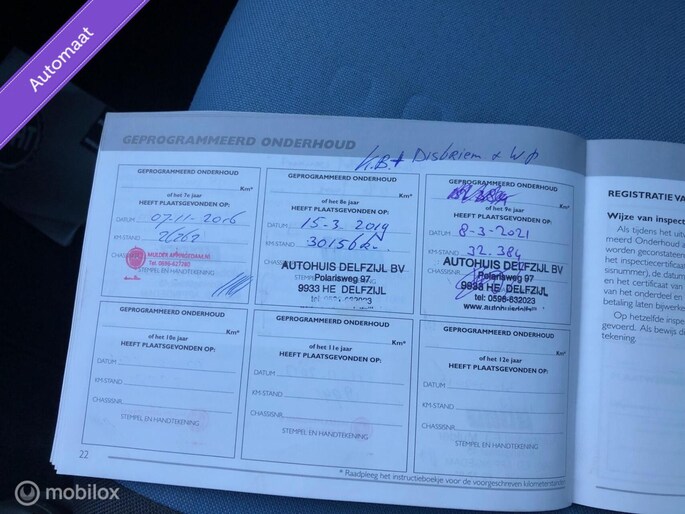 Automaat
GEPROGRAMMEERD ONDERHOUD
K.B.+ Distriem + WP
GEPROGRAMMEERD ONDERHOUD
Km*
of het 7e jaar
HEEFT PLAATSGEVONDEN OP:
DATUM 07-11-2016
KM-STAND
CHASSISNR.
MULDER APPINGEDAM.NL
Tel. 0596-627280
STEMPEL EN HANDTEKENING
GEPROGRAMMEERD ONDERHOUD
Km*
of het 8e jaar
HEEFT PLAATSGEVONDEN OP:
DATUM 15-3-2019
KM-STAND 30156
CHASSISNR.
AUTOHUIS DELFZIJL BV
Polarisweg 97
9933 HE DELFZIJL
tel: 0596-632023
GEPROGRAMMEERD ONDERHOUD
Km*
of het 9e jaar
HEEFT PLAATSGEVONDEN OP:
DATUM 8-3-2021
KM-STAND 32.384
CHASSISNR.
AUTOHUIS DELFZIJL BV
Polarisweg 97
9933 HE DELFZIJL
tel: 0596-632023
GEPROGRAMMEERD ONDERHOUD
Km*
of het 10e jaar
HEEFT PLAATSGEVONDEN OP:
DATUM
KM-STAND
CHASSISNR.
STEMPEL EN HANDTEKENING
GEPROGRAMMEERD ONDERHOUD
Km*
of het 11e jaar
HEEFT PLAATSGEVONDEN OP:
DATUM
KM-STAND
CHASSISNR.
STEMPEL EN HANDTEKENING
GEPROGRAMMEERD ONDERHOUD
Km*
of het 12e jaar
HEEFT PLAATSGEVONDEN OP:
DATUM
KM-STAND
CHASSISNR.
STEMPEL EN HANDTEKENING
22
* Raadpleeg het instructieboekje voor de voorgeschreven kilometerstanden
REGISTRATIE VA
Wijze van inspect
Als tijdens het uit
meerd Onderhoud a
worden geconstateer
het inspectiecertificaat
sisnummer), de datum
en het certificaat van
van het onderdeel en
betaling laten bijwerke
Op hetzelfde inspect
gevoerd. Als bewijs di
tekening.
mobilox